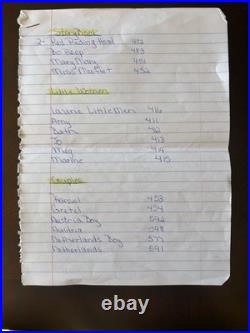 Storybook
2- Red Riding Hood 482
Bo Peep 483
Mary Mary 451
Miss Muffet 452
Little Women
Laurie Little Men 416
Amy 411
Beth 412
Jo 413
Meg 414
Marme 415
Couples
Hansel 453
Gretel 454
Austria Boy 592
Austria 598
Netherlands Boy 577
Netherlands 591